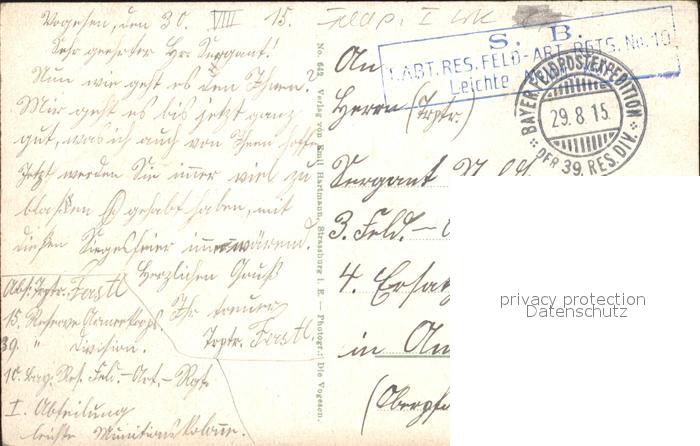 Vogesen, den 30. VIII 15.
Sehr geehrter Hr. Sergant!
Nun wie geht es den Ihnen?
Mir geht es bis jetzt ganz
gut, was ich auch von Ihnen hoffe.
Jetzt werden Sie immer viel zu
blasen gehabt haben, mit
diesen Siegesfeier immerwärend.
Herzlichen Gruß
Ihr treuer
Trptr. Fastl
Abs: Trptr. Fastl
15. Reserve Armeekorps
39. " Division.
10. bay. Res. Feld.-Art.-Rgt.
I. Abteilung
leichte Munitionskolonne.
No. 642 Verlag von Emil Hartmann, Strassburg i. E. — Photogr.: Die Vogesen.
Feldp. I
S. B.
I. ABT. RES. FELD-ART. RGTS. No. 10
Leichte
BAYER. FELDPOSTEXPEDITION
29.8.15.
DER 39. RES. DIV.
An
Herrn (Trptr.)
Sergant
3. Feld.-
4. Ersatz
in
(Oberpf
privacy protection
Datenschutz